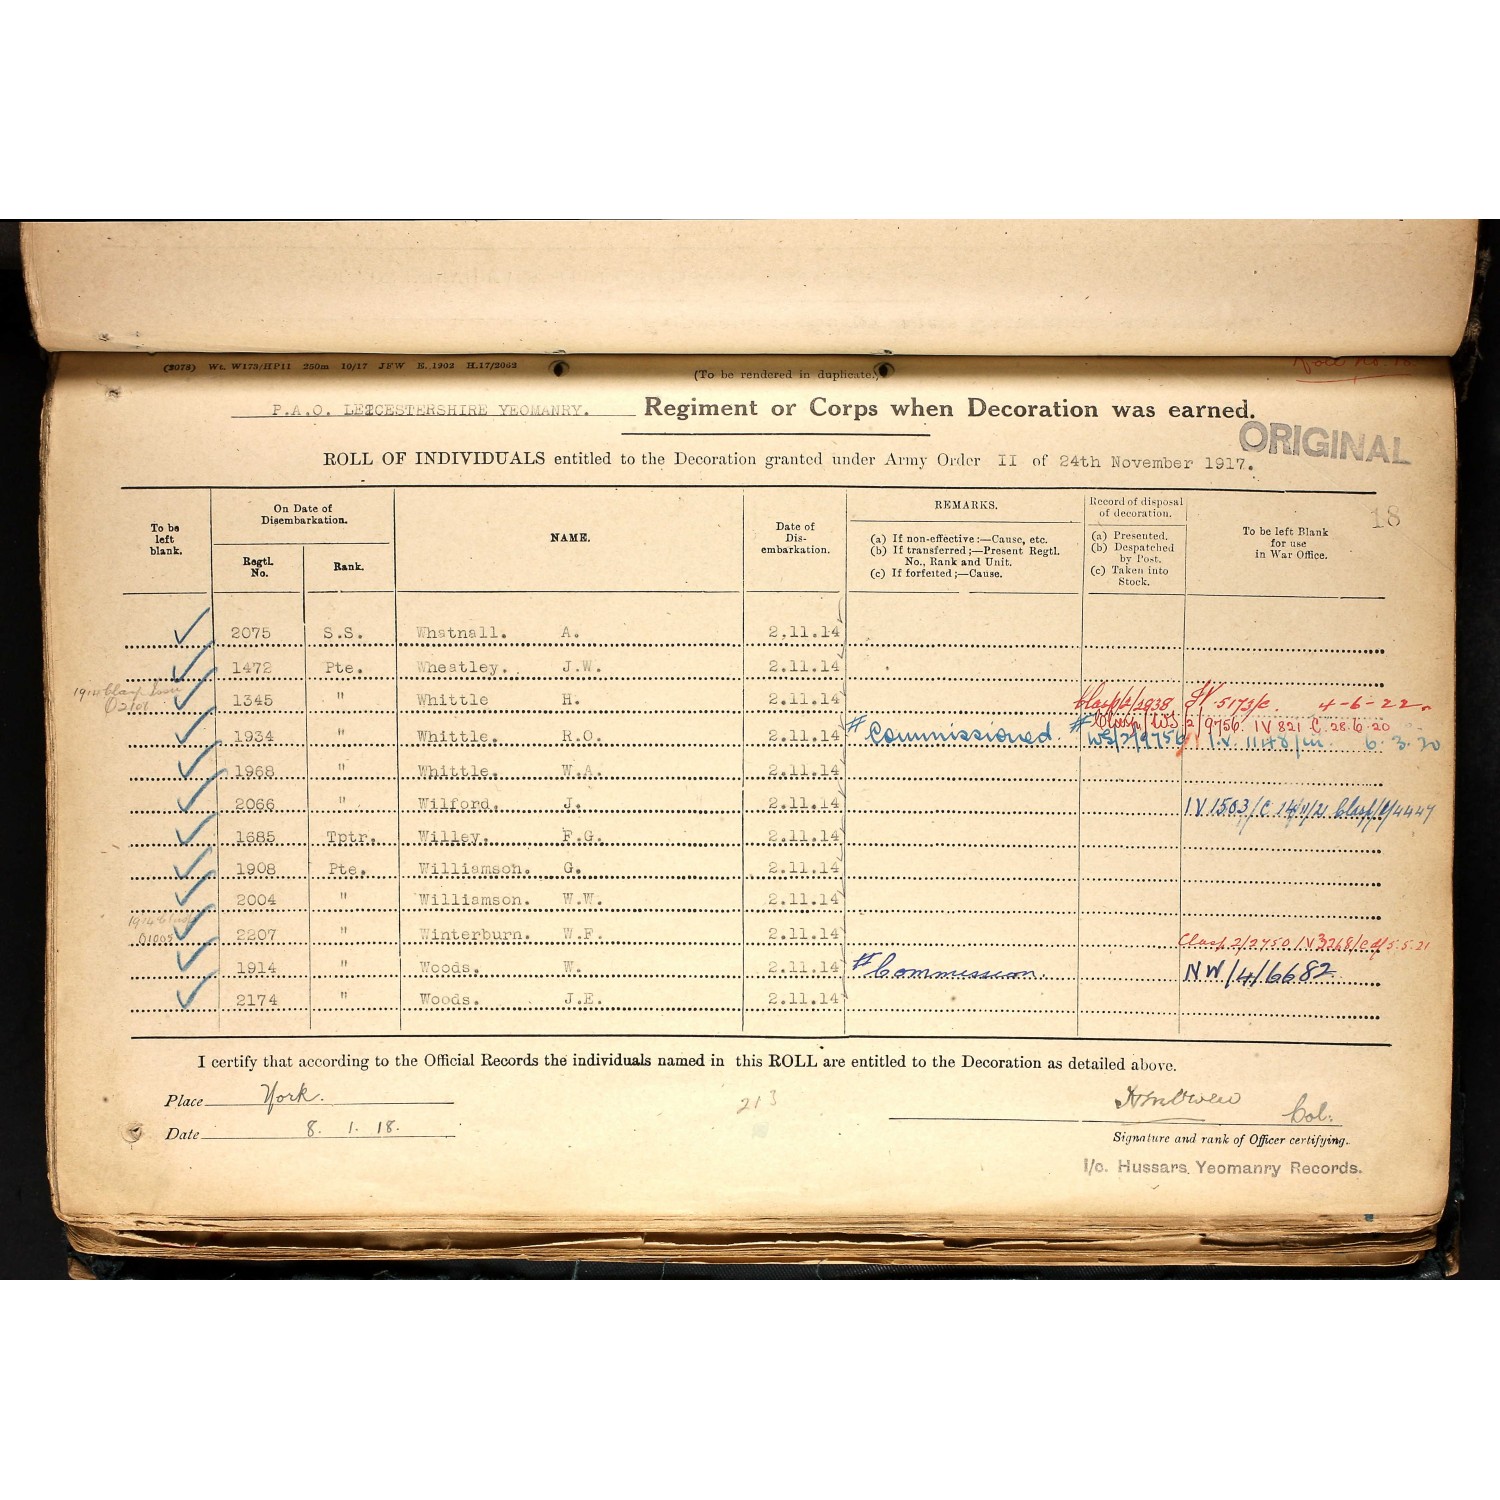 (2078) Wt. W173/HP11 250m 10/17 JFW E. 1902 H.17/2062
(To be rendered in duplicate.)
P.A.O. LEICESTERSHIRE YEOMANRY. Regiment or Corps when Decoration was earned.
ORIGINAL
ROLL OF INDIVIDUALS entitled to the Decoration granted under Army Order II of 24th November 1917.
18
To be left blank.
On Date of Disembarkation.
Regtl. No.
Rank.
NAME.
Date of Dis-embarkation.
REMARKS.
(a) If non-effective:—Cause, etc.
(b) If transferred;—Present Regtl. No., Rank and Unit.
(c) If forfeited;—Cause.
Record of disposal of decoration.
(a) Presented.
(b) Despatched by Post.
(c) Taken into Stock.
To be left Blank for use in War Office.
2075 S.S. Whatnall. A. 2.11.14
1472 Pte. Wheatley. J.W. 2.11.14
1345 " Whittle H. 2.11.14 Clasp/2/2938 IV 5173/c. 4-6-22.
1934 " Whittle. R.O. 2.11.14 # Commissioned. # Clasp/WS 2/9756. IV 821 C 28.6.20
WS/2/9756 I.V. 1148/ 6.3.20
1968 " Whittle. W.A. 2.11.14
2066 " Wilford. J. 2.11.14 IV 1503/C 14/11/21 Clasp/2/4447
1685 Tptr. Willey. F.G. 2.11.14
1908 Pte. Williamson. G. 2.11.14
2004 " Williamson. W.W. 2.11.14
2207 " Winterburn. W.F. 2.11.14 Clasp 2/2750 IV3268/c 5.5.21
1914 " Woods. W. 2.11.14 # Commission. NW/4/6682
2174 " Woods. J.E. 2.11.14
I certify that according to the Official Records the individuals named in this ROLL are entitled to the Decoration as detailed above.
Place York.
213
Col.
Date 8. 1. 18.
Signature and rank of Officer certifying.
I/c. Hussars. Yeomanry Records.